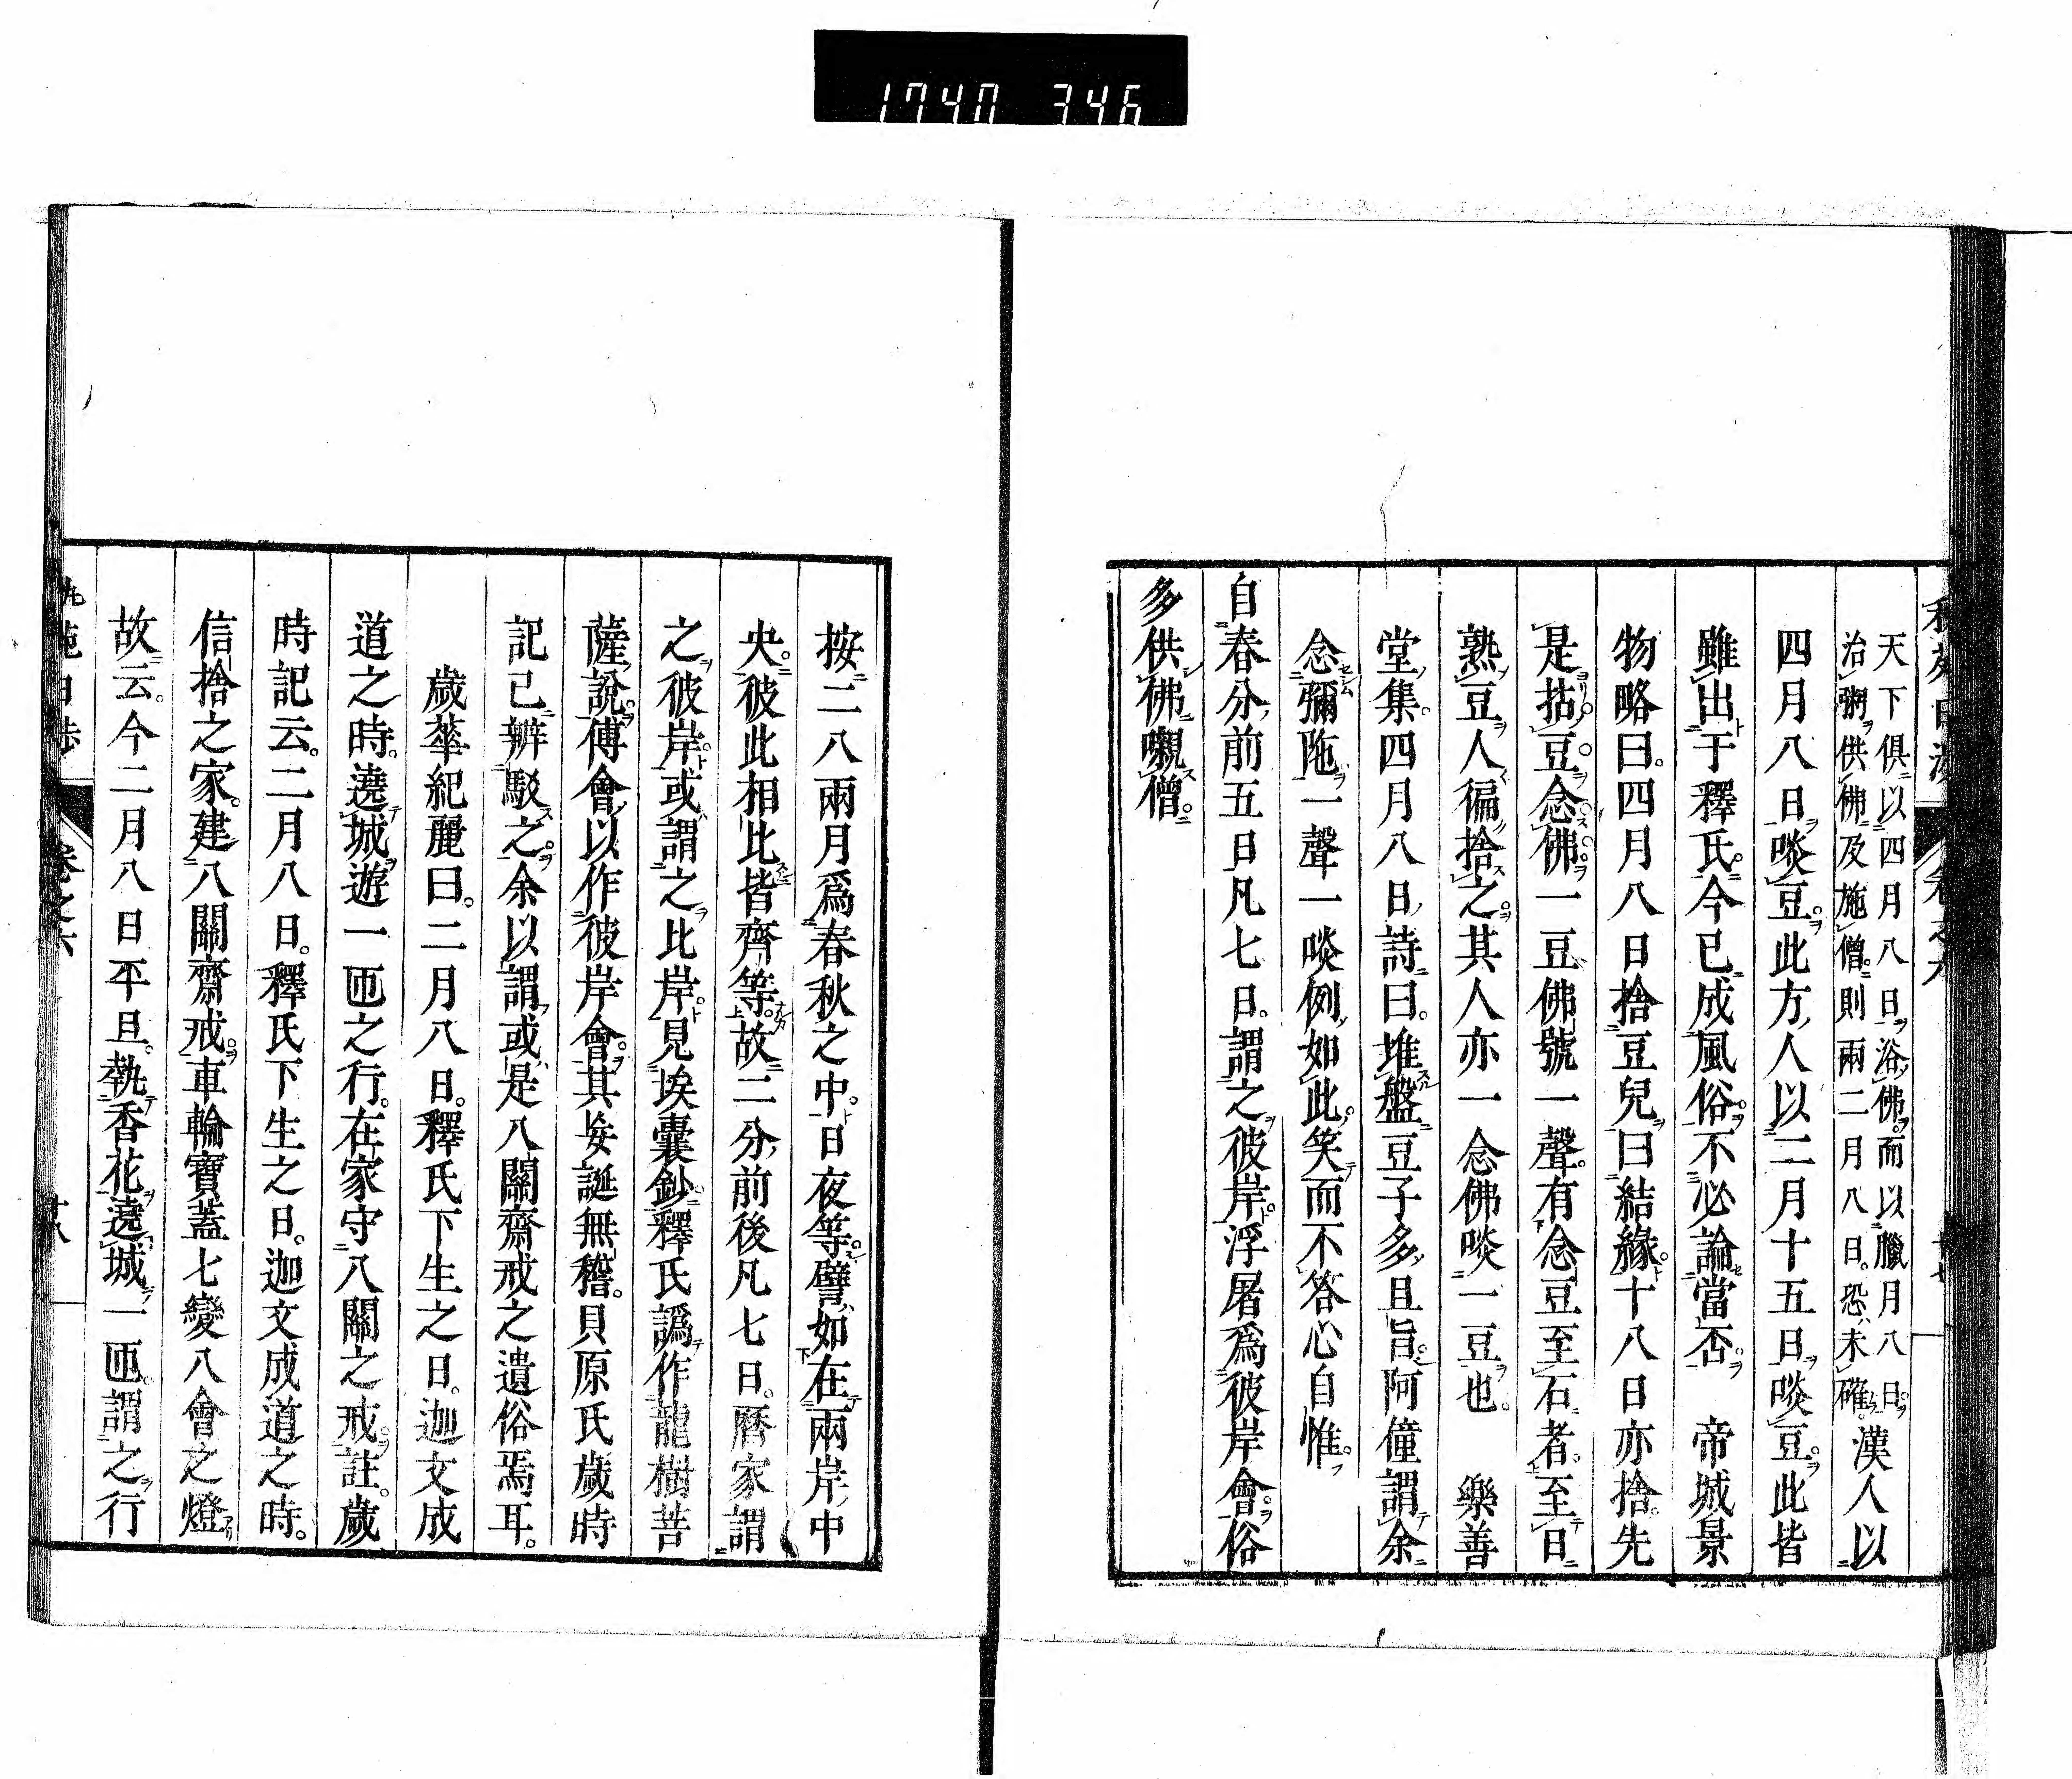 1740 346
天下俱以四月八日浴佛而以臘月八日
治粥供佛及施僧則兩二月八日恐未確
漢人以
四月八日啖豆此方人以二月十五日啖豆此皆
雖出于釋氏今已成風俗不必論當否 帝城景
物略曰四月八日捨豆兒曰結緣十八日亦捨先
是拈豆念佛一豆佛號一聲有念豆至石者至日
熟豆人徧捨之其人亦一念佛啖一豆也 樂善
堂集四月八日詩曰堆盤豆子多且旨阿僮謂余
念彌陁一聲一啖例如此笑而不答心自惟
自春分前五日凡七日謂之彼岸浮屠爲彼岸會俗
多供佛嚫僧
按二八兩月爲春秋之中日夜等譬如在兩岸中
央彼此相比皆齊等故二分前後凡七日曆家謂
之彼岸或謂之比岸見埃囊鈔釋氏譌作龍樹菩
薩說傅會以作彼岸會其妄誕無稽貝原氏歲時
記已辨駁之余以謂或是八關齋戒之遺俗焉耳
歲華紀麗曰二月八日釋氏下生之日迦文成
道之時遶城遊一匝之行在家守八關之戒註歲
時記云二月八日釋氏下生之日迦文成道之時
信捨之家建八關齋戒車輪寶蓋七變八會之燈
故云今二月八日平旦執香花遶城一匝謂之行
卷之六
十八